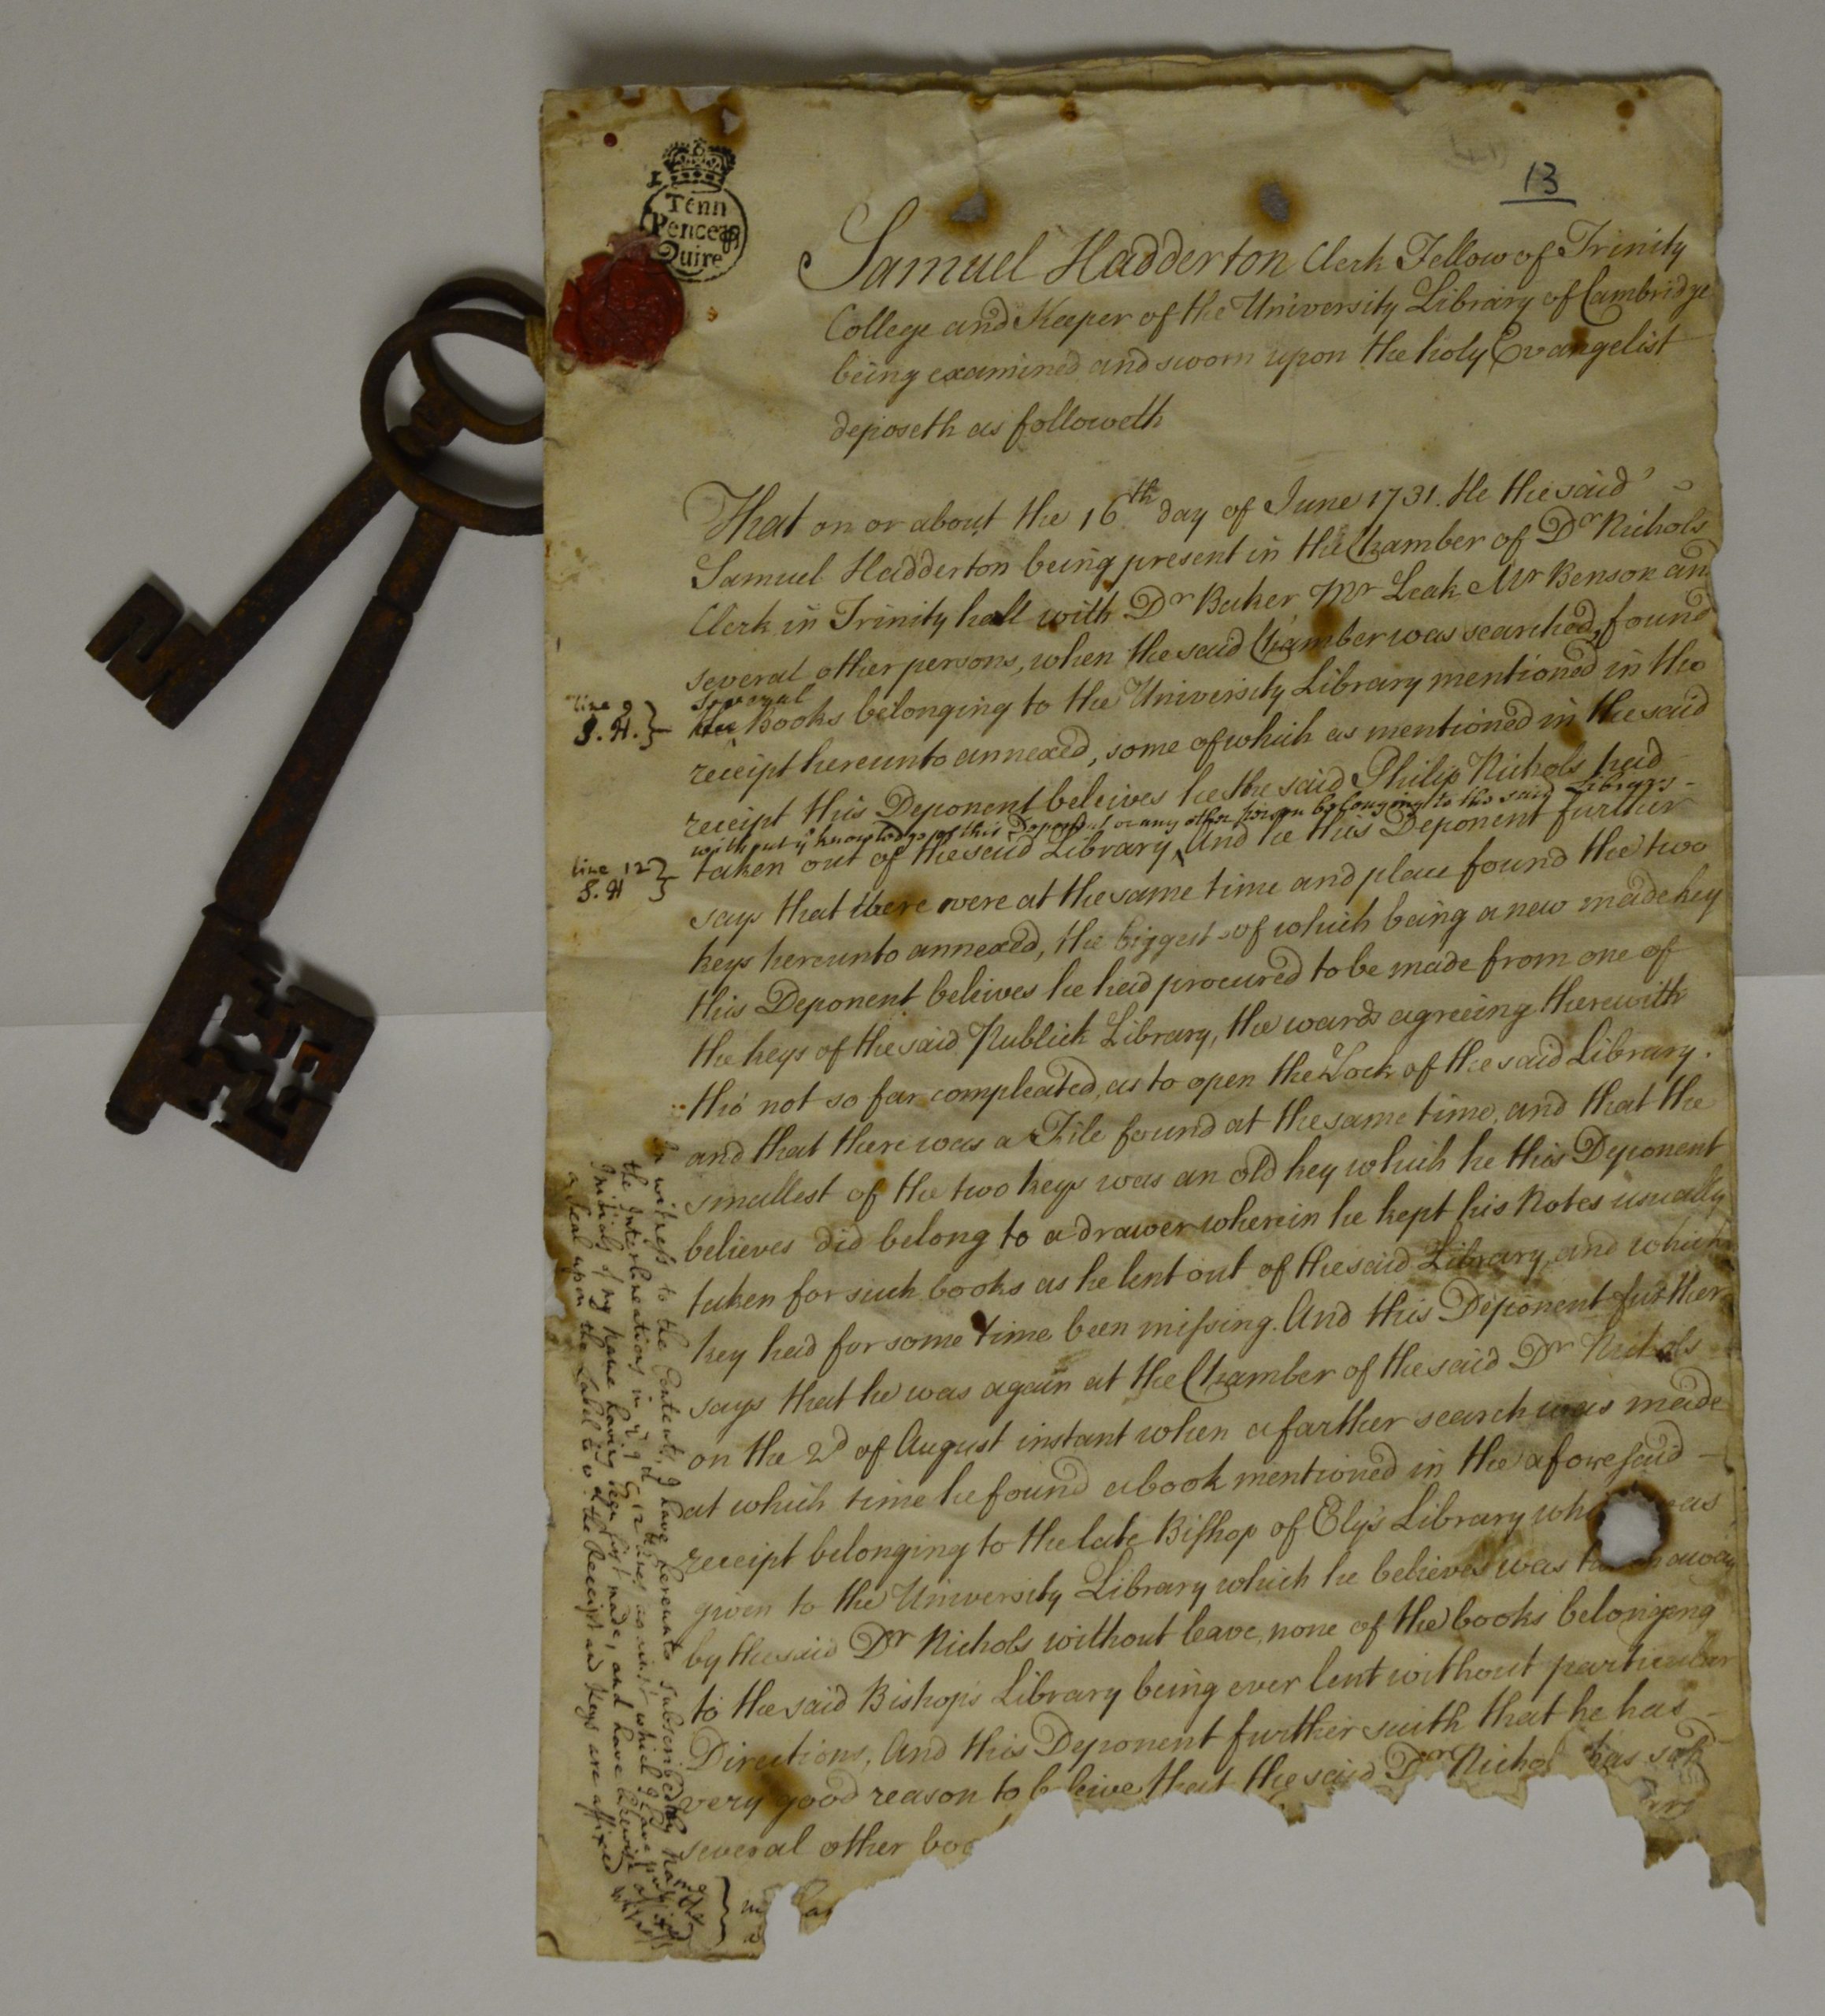 13
Tenn
Pence ꝑ
Quire
Samuel Hadderton Clerk Fellow of Trinity
College and Keeper of the University Library of Cambridge
being examined and sworn upon the holy Evangelist
deposeth as followeth
That on or about the 16th day of June 1731. He the said
Samuel Hadderton being present in the Chamber of Dr Nichols
Clerk in Trinity hall with Dr Baker Mr Leak Mr Benson and
several other persons, when the said Chamber was searched, found
several
line 9
S. H. }
the Books belonging to the University Library mentioned in the
receipt hereunto annexed, some of which as mentioned in the said
receipt this Deponent beleives he the said Philip Nichols had
without ye knowledge of this Deponent or any other person belonging to the said Library
line 12
S. H }
taken out of the said Library ‸ And he this Deponent further
says that there were at the same time and place found the two
keys hereunto annexed, the biggest of which being a new made key
this Deponent beleives he had procured to be made from one of
the keys of the said Publick Library, the wards agreeing therewith
tho' not so far compleated, as to open the Lock of the said Library.
and that there was a File found at the same time, and that the
smallest of the two keys was an old key which he this Deponent
believes did belong to a drawer wherein he kept his Notes usually
taken for such books as he lent out of the said Library, and which
key had for some time been missing. And this Deponent further
says that he was again at the Chamber of the said Dr Nichols
on the 2d of August instant when a farther search was made
at which time he found a book mentioned in the aforesaid
receipt belonging to the late Bishop of Ely's Library
given to the University Library which he believes was away
by the said Dr Nichols without leave, none of the books belonging
to the said Bishop's Library being ever lent without particular
Directions, And this Deponent further saith that he has
very good reason to beleive that the said Dr has
several other
In witness to the Contents, I have hereunto subscribed my Name
the Interlineations in ye 9th & 12th lines against which I have put the
Initials of my Name having been first made, and have likewise affixed
a Seal upon the Label to wch the Receipt and Keys are affixed